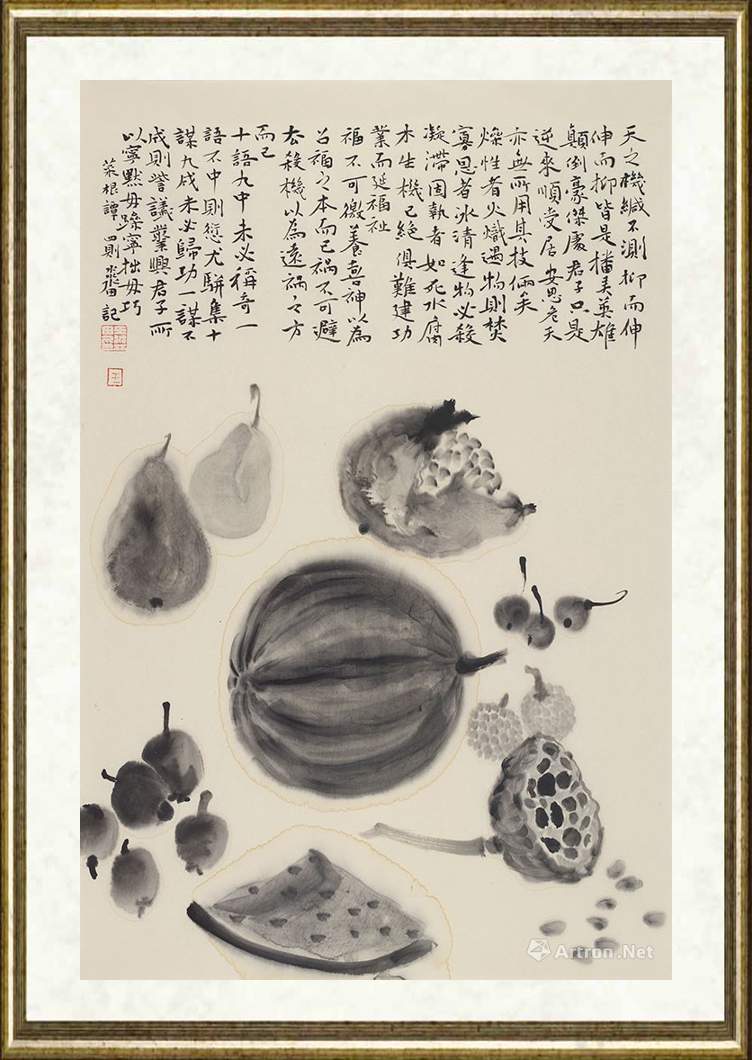 天之機緘不測抑而伸
伸而抑皆是播弄英雄
顛倒豪傑處君子只是
逆來順受居安思危天
亦無所用其技倆矣
燥性者火熾遇物則焚
寡恩者冰清逢物必殺
凝滯固執者如死水腐
木生機已絕俱難建功
業而延福祉
福不可徼養喜神以為
召福之本而已禍不可避
去殺機以為遠禍之方
而已
十語九中未必稱奇一
語不中則愆尤駢集十
謀九成未必歸功一謀不
成則訾議叢興君子所
以寧默毋躁寧拙毋巧
菜根譚四則 記
Artron.Net